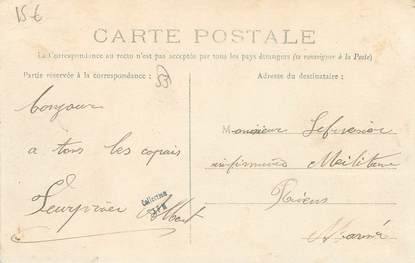 15€
CARTE POSTALE
La Correspondance au recto n'est pas acceptée par tous les pays étrangers (se renseigner à la Poste)
Partie réservée à la correspondance :
Adresse du destinataire :
Bonjour
à tous les copais
Albert
Collection
Monsieur
infirmerie Militaire
Reims
Marne